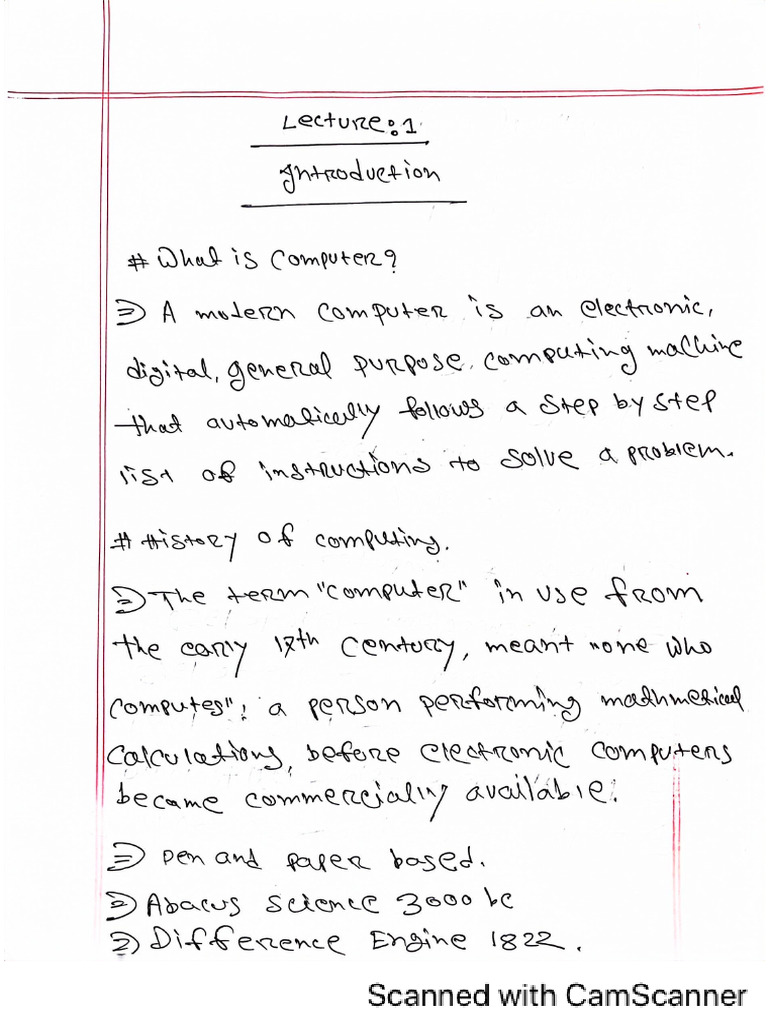 Lecture:1
Introduction
# What is Computer?
⇒ A modern computer is an electronic,
digital, general purpose, computing machine
that automatically follows a step by step
list of instructions to solve a problem.
# History of computing.
⇒ The term "computer" in use from
the early 17th century, meant "one who
computes"; a person performing mathmetical
calculations, before electronic computers
became commercially available.
⇒ pen and paper based.
⇒ Abacus science 3000 bc
⇒ Difference Engine 1822.
Scanned with CamScanner